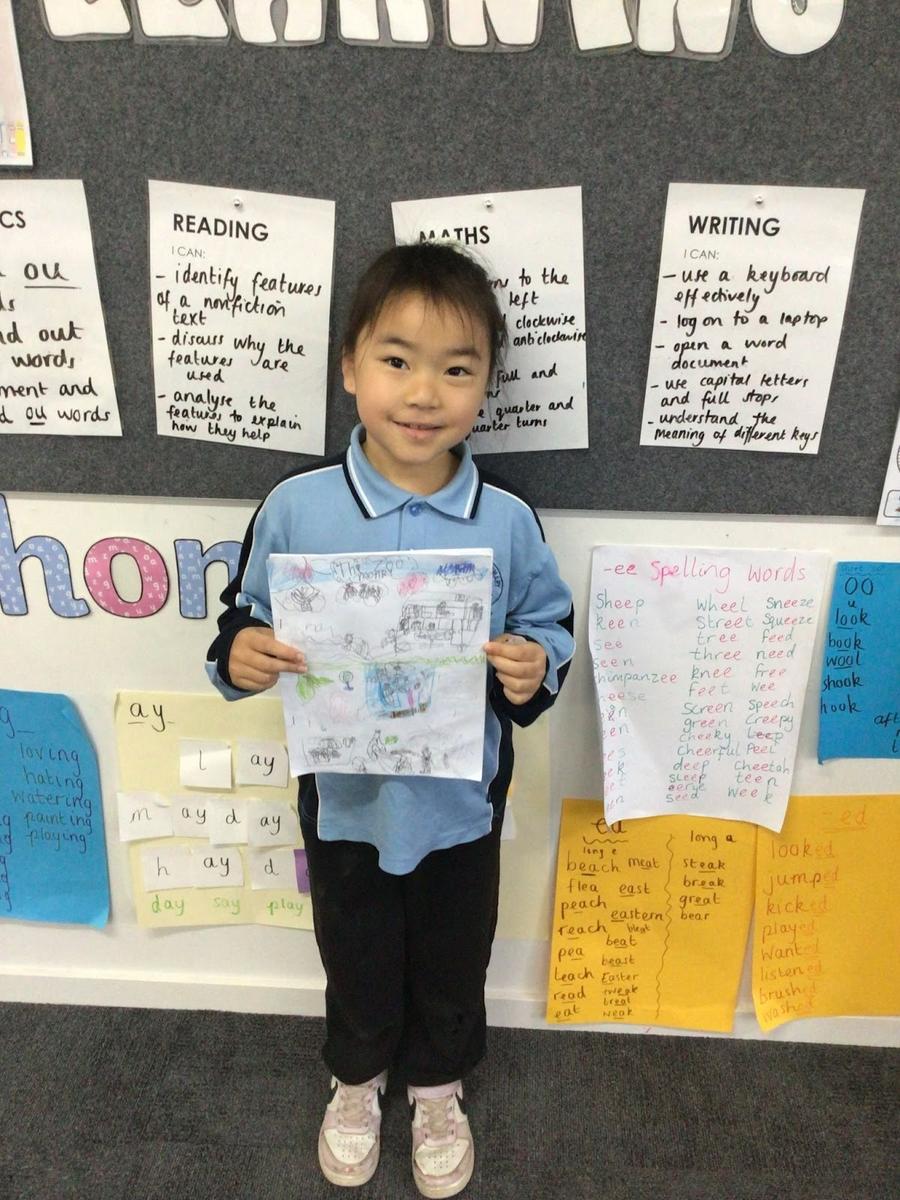 LEARNING
CS
ou
nd out
words
ment and
d ou words
READING
I CAN:
- identify features
of a nonfiction
text
- discuss why the
features are
used
- analyse the
features to explain
how they help
MATHS
to the
left
clockwise
anticlockwise
full and
quarter and
quarter turns
WRITING
I CAN:
- use a keyboard
effectively
- log on to a laptop
- open a word
document
- use capital letters
and full stops
- understand the
meaning of different keys
hon
The Zoo
loving
hating
watering
painting
playing
ay
l ay
m ay d ay
h ay d
day say play
-ee Spelling words
Sheep wheel Sneeze
keen street squeeze
see tree feed
seen three need
himpanzee knee free
eese feet wee
screen speech
green creepy
cheeky beep
cheerful Peel
deep cheetah
sleep teen
seed week
oo
u
look
book
wool
shook
hook
long e
beach meat
flea east
peach
eastern
reach bleat
pea beat
beast
teach Easter
read tweak
eat weak
long a
steak
break
great
bear
-ed
looked
jumped
kicked
played
wanted
listened
brushed
washed